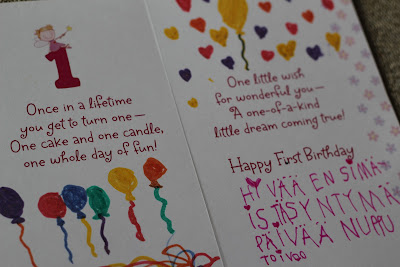 1
Once in a lifetime
you get to turn one—
One cake and one candle,
one whole day of fun!
One little wish
for wonderful you—
A one-of-a-kind
little dream coming true!
Happy First Birthday
HYVÄÄ ENSIMÄ
ISTÄSYNTYMÄ
PÄIVÄÄ NUPPU
toivoo